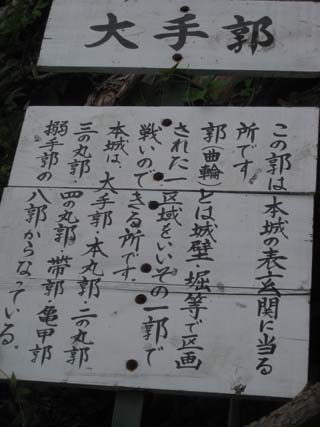 大手郭
この郭は本城の表玄関に当る
所です。
郭(曲輪)とは城壁堀等で区画
された一区域をいいその一郭で
戦いのできる所です。
本城は、大手郭・本丸郭・二の丸郭
三の丸郭・四の丸郭・帯郭・亀甲郭
搦手郭の八郭からなっている。